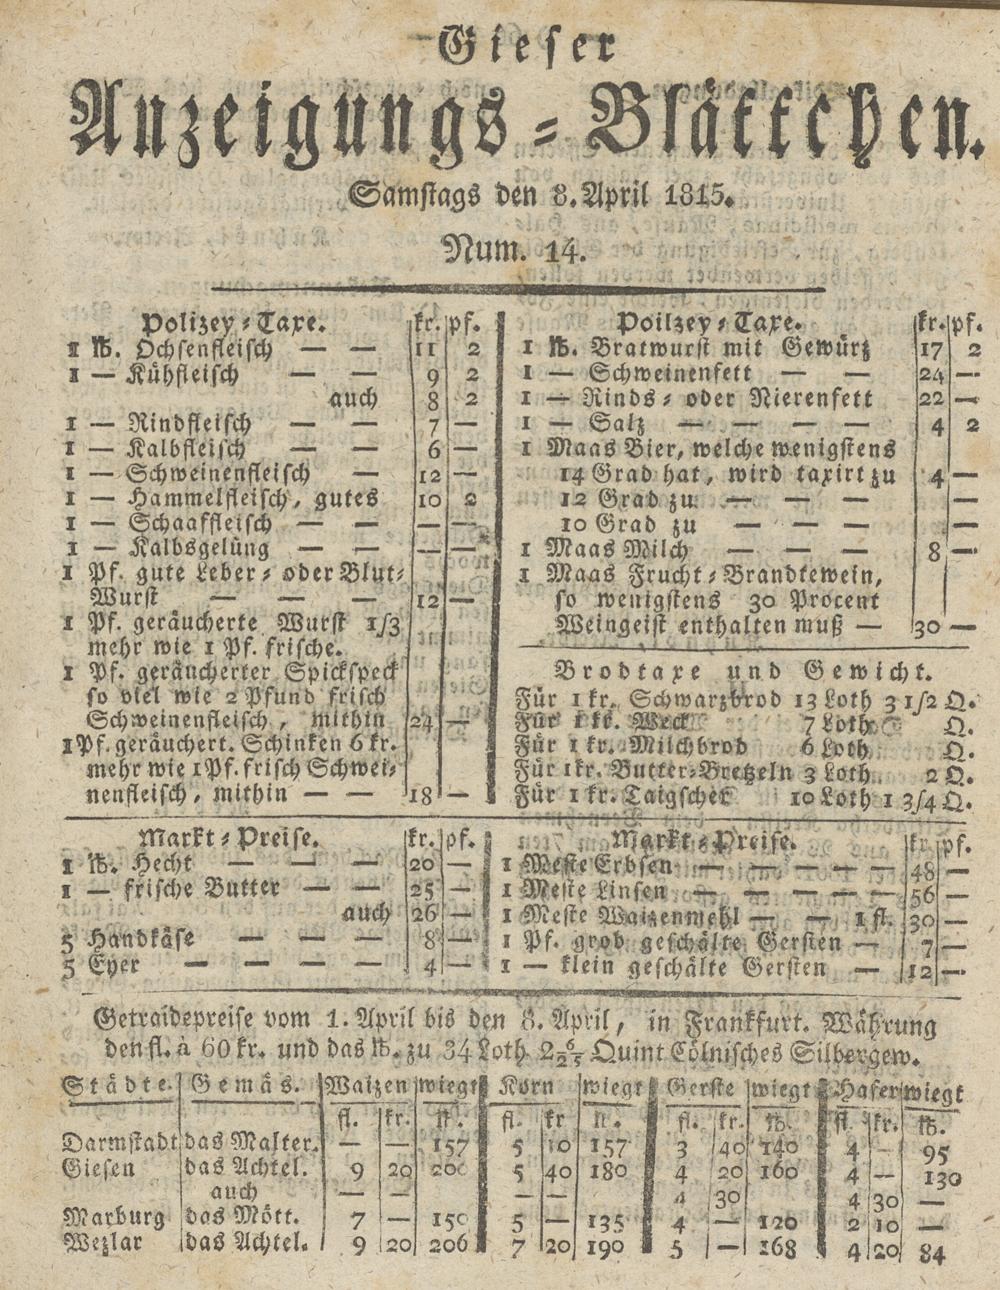 Gieser
Anzeigungs-Blättchen.
Samstags den 8. April 1815.
Num. 14.
Polizey-Taxe. kr. pf.
1 ℔. Ochsenfleisch — — 11 2
1 — Kühfleisch — — 9 2
auch 8 2
1 — Rindfleisch — — 7 —
1 — Kalbfleisch — — 6 —
1 — Schweinenfleisch — 12 —
1 — Hammelfleisch, gutes 10 2
1 — Schaaffleisch — — — —
1 — Kalbsgelüng — — — —
1 Pf. gute Leber- oder Blut-
Wurst — — — 12 —
1 Pf. geräucherte Wurst 1/3
mehr wie 1 Pf. frische.
1 Pf. geräucherter Spickspeck
so viel wie 2 Pfund frisch
Schweinenfleisch, mithin 24 —
1 Pf. geräuchert. Schinken 6 kr.
mehr wie 1 Pf. frisch Schwei-
nenfleisch, mithin — — 18 —
Poilzey-Taxe. kr. pf.
1 ℔. Bratwurst mit Gewürz 17 2
1 — Schweinenfett — — 24 —
1 — Rinds- oder Nierenfett 22 —
1 — Salz — — — — 4 2
1 Maas Bier, welche wenigstens
14 Grad hat, wird taxirt zu 4 —
12 Grad zu — — — —
10 Grad zu — — — —
1 Maas Milch — — — 8 —
1 Maas Frucht-Brandtewein,
so wenigstens 30 Procent
Weingeist enthalten muß — 30 —
Brodtaxe und Gewicht.
Für 1 kr. Schwarzbrod 13 Loth 3 1/2 Q.
Für 1 kr. Weck 7 Loth Q.
Für 1 kr. Milchbrod 6 Loth Q.
Für 1 kr. Butter-Bretzeln 3 Loth 2 Q.
Für 1 kr. Taigscher 10 Loth 1 3/4 Q.
Markt-Preise. kr. pf.
1 ℔. Hecht — — — 20 —
1 — frische Butter — — 25 —
auch 26 —
5 Handkäse — — — 8 —
5 Eyer — — — — 4 —
Markt-Preise. kr. pf.
1 Meste Erbsen — — — — 48 —
1 Meste Linsen — — — — 56 —
1 Meste Waizenmehl — — 1 fl. 30 —
1 Pf. grob geschälte Gersten — 7 —
1 — klein geschälte Gersten — 12 —
Getraidepreise vom 1. April bis den 8. April, in Frankfurt. Währung
den fl. à 60 kr. und das ℔. zu 34 Loth Quint Cölnisches Silbergew.
Städte. Gemäs. Waizen wiegt Korn wiegt Gerste wiegt Hafer wiegt
fl. kr. ℔. fl. kr ℔. fl. kr. ℔. fl. kr. ℔.
Darmstadt das Malter. — — 157 5 10 157 3 40 140 4 — 95
Giesen das Achtel. 9 20 200 5 40 180 4 20 160 4 — 130
auch — — — — 4 30 4 30 —
Marburg das Mött. 7 — 150 5 — 135 4 — 120 2 10 —
Wezlar das Achtel. 9 20 206 7 20 190 5 — 168 4 20 84